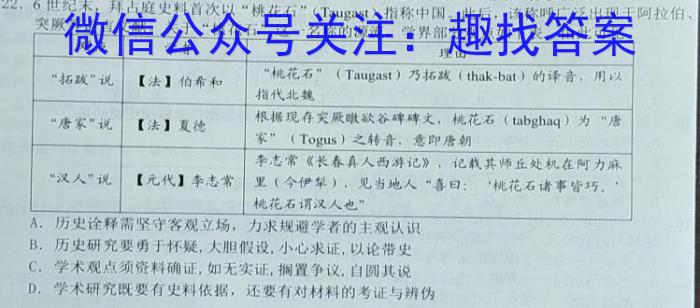 22. 6世纪末，拜占庭史料首次以“桃花石”(Taugast)指称中国，此后，该称呼广泛出现于阿拉伯、
突厥
微信公众号关注：趣找答案
理由
“拓跋”说 【法】伯希和 “桃花石”(Taugast)乃拓跋(thak-bat)的译音，用以
指代北魏
“唐家”说 【法】夏德 根据现存突厥暾欲谷碑碑文，桃花石(tabghaq)为“唐
家”(Togus)之转音，意即唐朝
“汉人”说 【元代】李志常 李志常《长春真人西游记》，记载其师丘处机在阿力麻
里(今伊犁)，见当地人“喜曰：‘桃花石诸事皆巧。’
桃花石谓汉人也”
A. 历史诠释需坚守客观立场，力求规避学者的主观认识
B. 历史研究要勇于怀疑,大胆假设,小心求证,以论带史
C. 学术观点须资料确证,如无实证,搁置争议,自圆其说
D. 学术研究既要有史料依据，还要有对材料的考证与辨伪